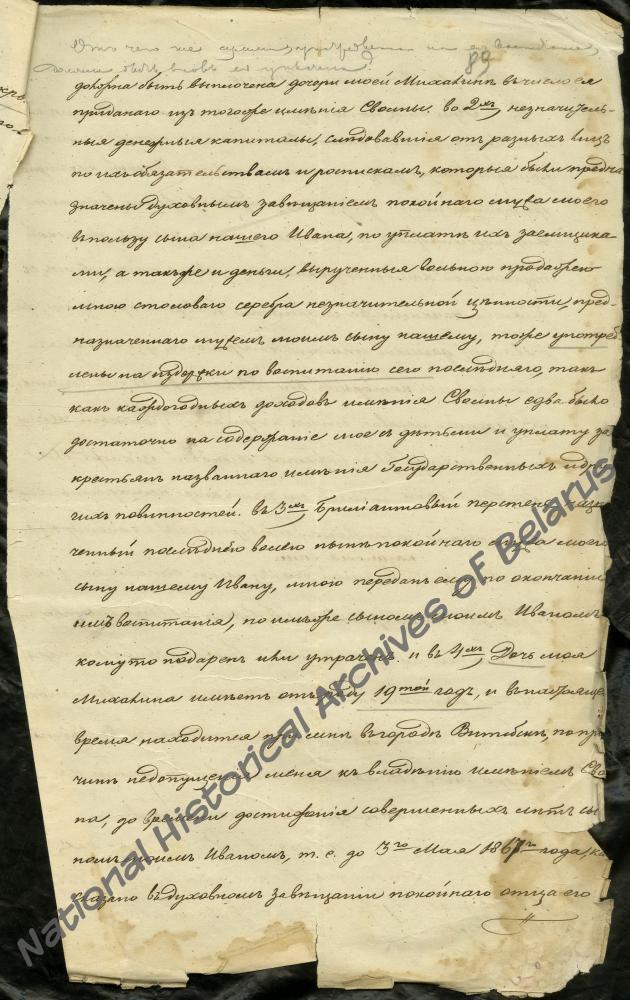 Отъ чего же сумма, употребленная на его воспитание,
должна быть вновь ея уплочена?
89
должна быть выплочена дочери моей Михалинѣ въ число ея
приданаго изъ тогоже имѣнія Своины. во 2хъ, незначитель-
ныя денежныя капиталы, слѣдовавшія отъ разныхъ лицъ
по ихъ обязательствамъ и роспискамъ, которыя были предна
значены духовнымъ завѣщаніемъ покойнаго мужа моего
въ пользу сына нашего Ивана, по уплатѣ ихъ заемщика-
ми, а также и деньги, вырученныя вольною продажею
мною столоваго серебра незначительной цѣнности, пред-
назначеннаго мужемъ моимъ сыну нашему, тоже употреб
лены на издержки по воспитанію сего послѣдняго, такъ
какъ каждогодныхъ доходовъ имѣнія Своины едва было
достаточно на содержаніе мое съ дѣтьми и уплату за
крестьянъ названнаго имѣнія Государственныхъ и дру
гихъ повинностей. въ 3хъ, Брилiантовый перстень, назна
ченный послѣднею волею нынѣ покойнаго мужа моего
сыну нашему Ивану, мною переданъ ему по окончаніи
имъ воспитанія, но имъ же сыномъ моимъ Иваномъ
кому то подаренъ или утраченъ, и въ 4хъ, Дочь моя
Михалина имѣетъ отъ роду 19той годъ, и въ настояще
время находится при мнѣ въ городѣ Витебскѣ, по при
чинѣ недопущенія меня къ владѣнію имѣніемъ Сво
на, до времени достиженія совершенныхъ лѣтъ сы
номъ моимъ Иваномъ, т. е. до 3го Мая 1867го года, ка
сказано въ духовномъ завѣщаніи покойнаго отца его
National Historical Archives of Belarus